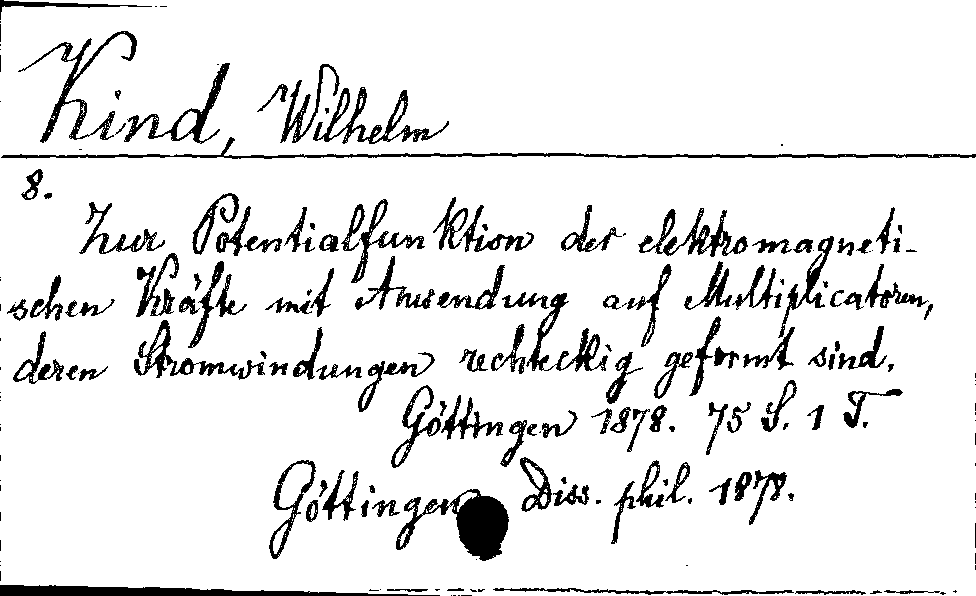 Kind, Wilhelm
8.
Zur Potentialfunktion der elektromagneti-
schen Kräfte mit Anwendung auf Multiplicatoren,
deren Stromwindungen rechteckig geformt sind.
Göttingen 1878. 75 S. 1 T.
Göttingen Diss. phil. 1878.